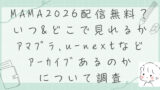 MAMA2026配信無料?
いつ&どこで見れるか
アマプラ,u-nextなど
アーカイブあるのか
について調査!